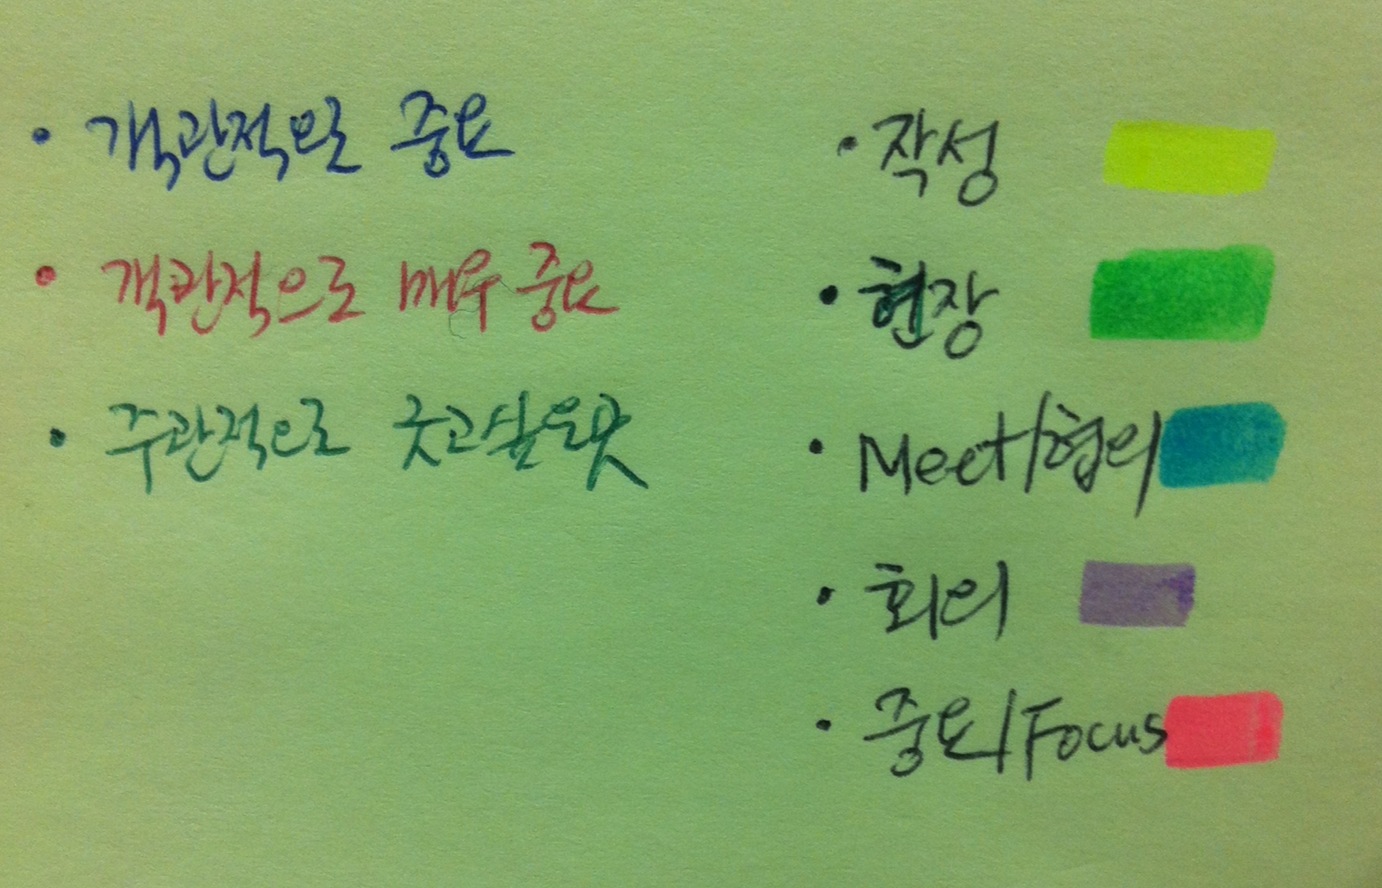 · 객관적으로 중요
· 객관적으로 매우 중요
· 주관적으로 긋고싶은곳
· 작성
· 현장
· Meet/협의
· 회의
· 중요/Focus